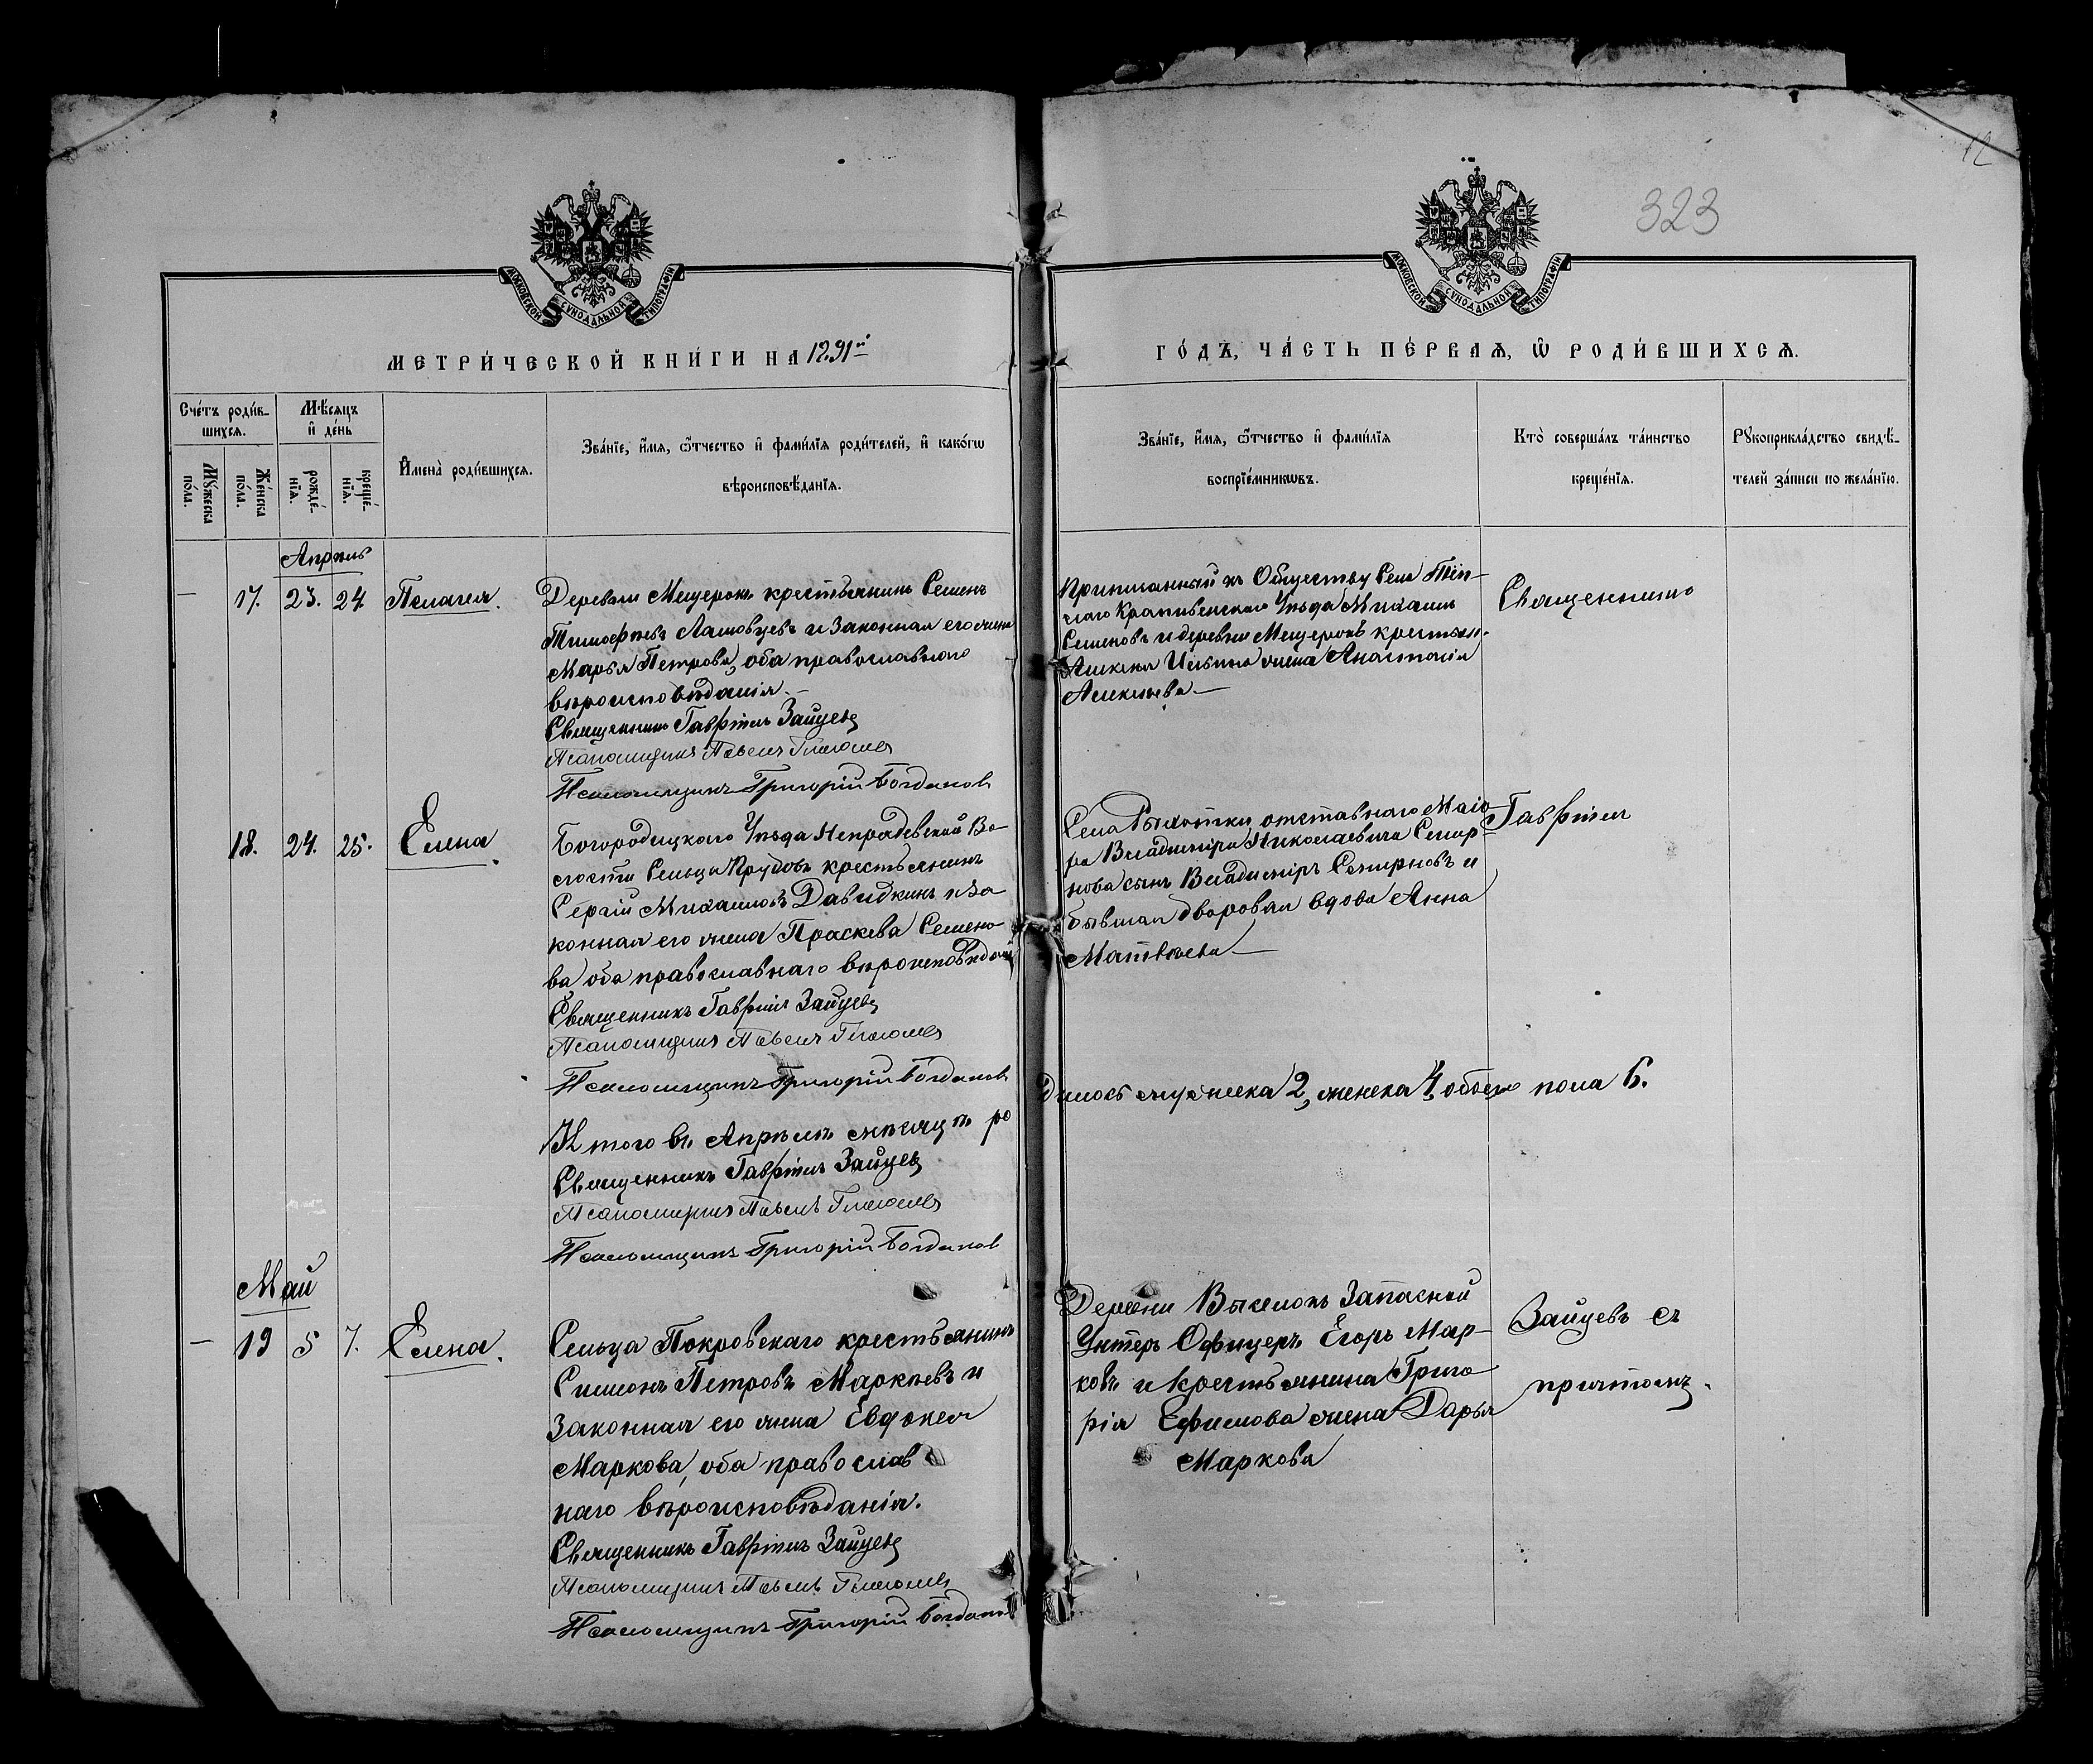 12
323
МОСКОВСКОЙ СѴНОДАЛЬНОЙ ТИПОГРАФІИ
МОСКОВСКОЙ СѴНОДАЛЬНОЙ ТИПОГРАФІИ
МЕТРИ́ЧЕСКОЙ КНИ́ГИ НА 1891й
ГО́ДЪ, ЧА́СТЬ ПЕ́РВАѦ, Ѡ҆ РОДИ́ВШИХСѦ.
Сче́тъ роди́в-
шихсѧ.
Мѣ́сѧцъ
и҆ де́нь
Мꙋ́жеска
по́ла.
Же́нска
по́ла.
рожде́-
нїѧ.
креще́-
нїѧ.
И҆мена̀ роди́вшихсѧ.
Зва́нїе, и҆́мѧ, ѻ҆́тчество и҆ фами́лїѧ роди́телей, и҆ како́гѡ
вѣроисповѣ́данїѧ.
Зва́нїе, и҆́мѧ, ѻ҆́тчество и҆ фами́лїѧ
воспрїе́мникѡвъ.
Кто̀ соверша́лъ та́инство
креще́нїѧ.
Рꙋкоприкла́дство свидѣ́-
телей за́писи по жела́нїю.
Апрѣль
— 17. 23. 24. Пелагея.
Деревни Мещерокъ крестьянинъ Семенъ
Тимофѣевъ и законная его жена
Марья Петрова, оба православнаго
вѣроисповѣданія.—
Священникъ Гавріилъ Зайцевъ
Псаломщикъ Павелъ
Псаломщикъ Григорій Богданов
Приписанный къ Обществу Села
Крапивенскаго Уѣзда Михаилъ
Семеновъ и деревни Мещерокъ крестьян.
Алексея Ильина жена Анастасія
Алексѣева—
Священникъ
18. 24. 25. Елена.
Богородицкаго Уѣзда Непрядевской Во-
лости Сельца Прудовъ крестьянинъ
Сергій Михаиловъ Давидкинъ и за
конная его жена Прасковья Семено-
ва оба православнаго вѣроисповѣданія
Священникъ Гавріилъ Зайцевъ
Псаломщикъ Павелъ
Псаломщикъ Григорій Богданов
Села отставнаго Маіо-
ра Владимира Николаевича Смир-
нова сынъ Владимиръ Смирновъ и
бывшая дворовая вдова Анна
Матвѣева—
Гавріилъ
Итого въ Апрѣлѣ мѣсяцѣ ро
дилось мужеска 2, женска 4, обоего пола 6.
Священникъ Гавріилъ Зайцевъ
Псаломщикъ Павелъ
Псаломщикъ Григорій Богданов
Май
— 19 5 7. Елена.
Сельца Покровскаго крестьянинъ
Симеонъ Петровъ Маркѣевъ и
законная его жена Евдокея
Маркова, оба православ
наго вѣроисповѣданія.
Священникъ Гавріилъ Зайцевъ
Псаломщикъ Павелъ
Псаломщикъ Григорій Богданов
Деревни Выселокъ Запасной
Унтеръ Офицеръ Егоръ Мар-
ковъ и крестьянина Григо
рія Ефимова жена Дарья
Маркова
Зайцевъ съ
причтомъ.